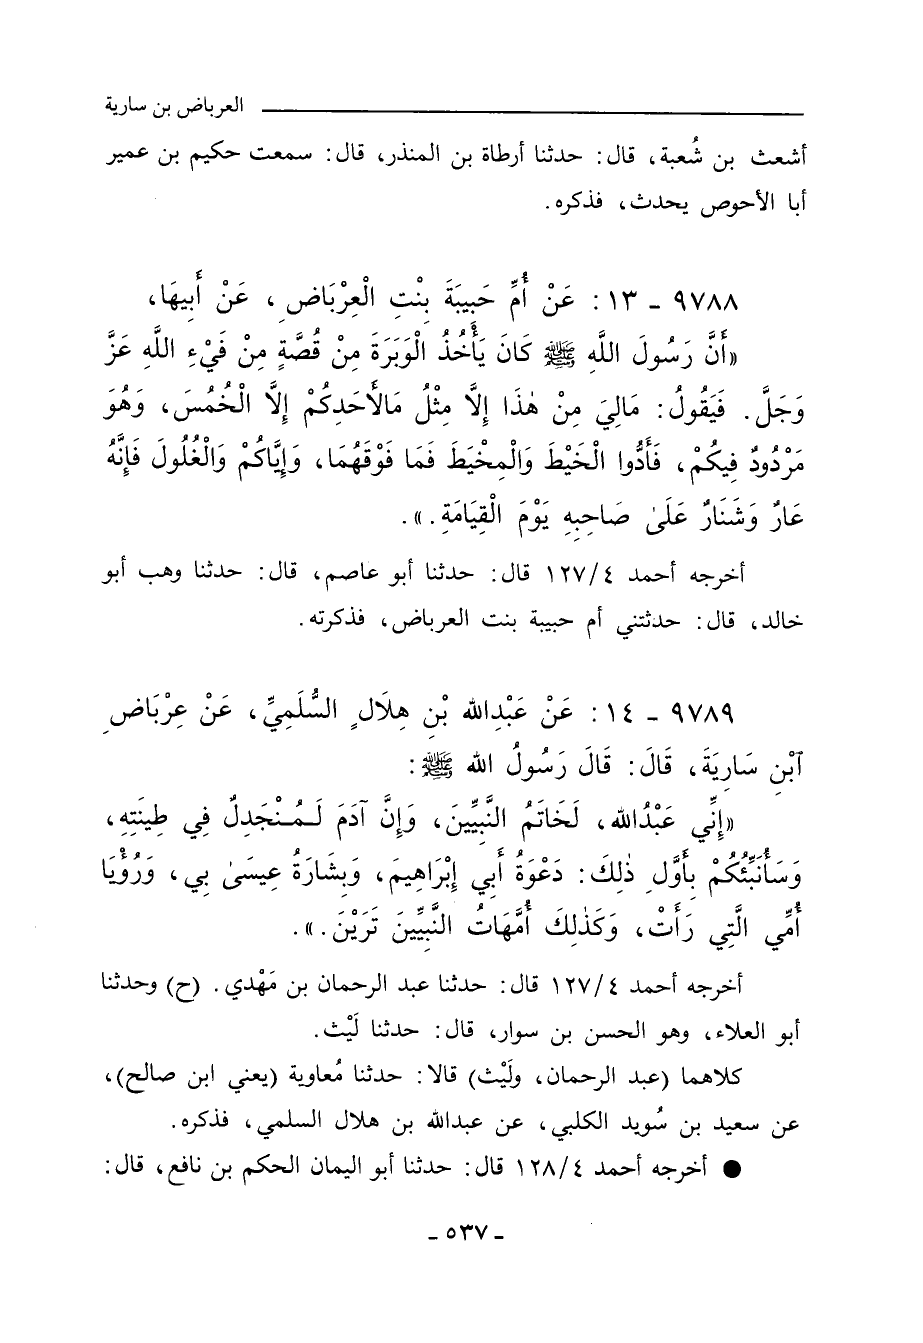 العرباض بن سارية
أشعث بن شُعبة، قال: حدثنا أرطاة بن المنذر، قال: سمعت حكيم بن عمير
أبا الأحوص يحدث، فذكره.
٩٧٨٨ - ١٣: عَنْ أُمِّ حَبِيبَةَ بِنْتِ الْعِرْبَاضِ، عَنْ أَبِيهَا،
«أَنَّ رَسُولَ اللَّهِ ﷺ كَانَ يَأْخُذُ الْوَبَرَةَ مِنْ قُصَّةٍ مِنْ فَيْءِ اللَّهِ عَزَّ
وَجَلَّ. فَيَقُولُ: مَالِيَ مِنْ هٰذَا إِلَّا مِثْلُ مَالأَحَدِكُمْ إِلَّا الْخُمُسَ، وَهُوَ
مَرْدُودٌ فِيكُمْ، فَأَدُّوا الْخَيْطَ وَالْمِخْيَطَ فَمَا فَوْقَهُمَا، وَإِيَّاكُمْ وَالْغُلُولَ فَإِنَّهُ
عَارٌ وَشَنَارٌ عَلَىٰ صَاحِبِهِ يَوْمَ الْقِيَامَةِ.».
أخرجه أحمد ٤/١٢٧ قال: حدثنا أبو عاصم، قال: حدثنا وهب أبو
خالد، قال: حدثتني أم حبيبة بنت العرباض، فذكرته.
٩٧٨٩ - ١٤: عَنْ عَبْدِالله بْنِ هِلَالٍ السُّلَمِيِّ، عَنْ عِرْبَاضِ
آبْنِ سَارِيَةَ، قَالَ: قَالَ رَسُولُ الله ﷺ:
«إِنِّي عَبْدُالله، لَخَاتَمُ النَّبِيِّينَ، وَإِنَّ آدَمَ لَمُنْجَدِلٌ فِي طِينَتِهِ،
وَسَأُنَبِّئُكُمْ بِأَوَّلِ ذٰلِكَ: دَعْوَةُ أَبِي إِبْرَاهِيمَ، وَبِشَارَةُ عِيسَىٰ بِي، وَرُؤْيَا
أُمِّي الَّتِي رَأَتْ، وَكَذٰلِكَ أُمَّهَاتُ النَّبِيِّينَ تَرَيْنَ.».
أخرجه أحمد ٤/١٢٧ قال: حدثنا عبد الرحمان بن مَهْدي. (ح) وحدثنا
أبو العلاء، وهو الحسن بن سوار، قال: حدثنا لَيْث.
كلاهما (عبد الرحمان، ولَيْث) قالا: حدثنا مُعاوية (يعني ابن صالح)،
عن سعيد بن سُويد الكلبي، عن عبدالله بن هلال السلمي، فذكره.
● أخرجه أحمد ٤/١٢٨ قال: حدثنا أبو اليمان الحكم بن نافع، قال:
- ٥٣٧ -